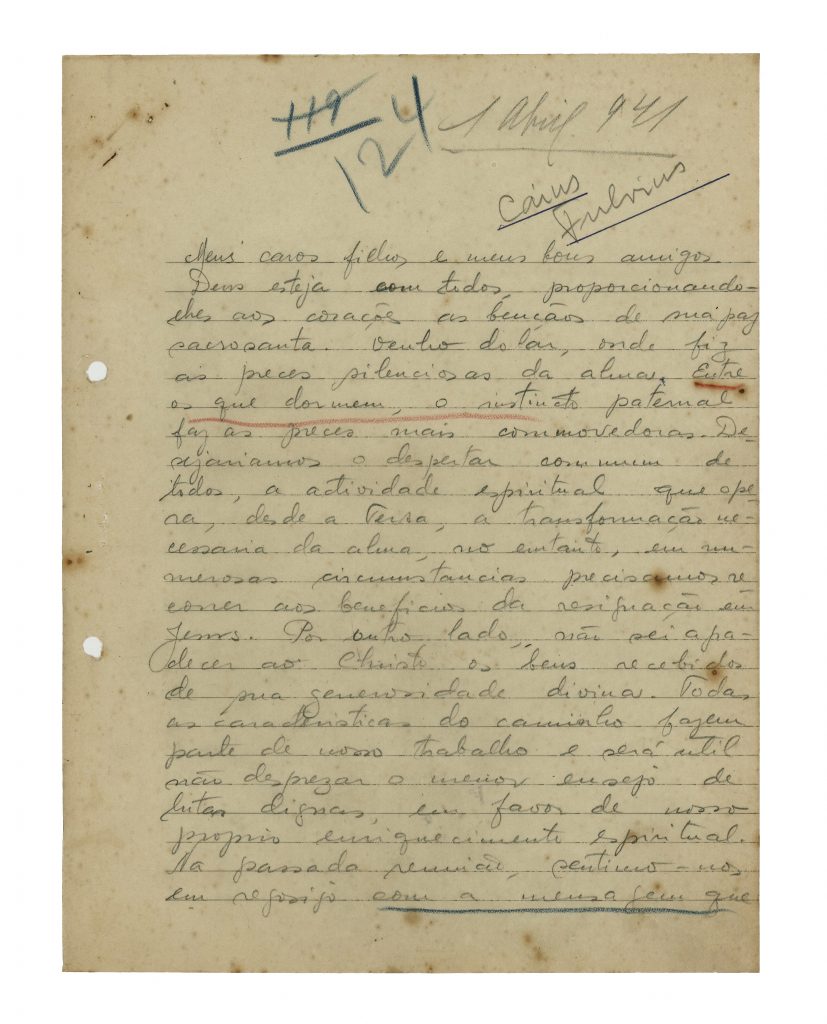 119
124
1 Abril 941
Cáius
Fulvius
Meus caros filhos e meus bons amigos
Deus esteja com todos, proporcionando-
lhes aos corações as bençãos de sua paz
sacrosanta. Venho do lár, onde fiz
as preces silenciosas da alma. Entre
os que dormem, o instincto paternal
faz as preces mais commovedoras. De-
sejariamos o despertar commum de
todos, a actividade espiritual que ope-
ra, desde a Terra, a transformação ne-
cessaria da alma, no emtanto, em nu-
merosas circumstancias precisamos re-
correr aos beneficios da resignação em
Jesus. Por outro lado, não sei
ao Christo os bens recebidos
de sua generosidade divina. Todas
as caracteristicas do caminho fazem
parte de nosso trabalho e será util
não desprezar o menor ensejo de
lutas dignas, em favor de nosso
proprio enriquecimento espiritual.
Na passada reunião, sentimo-nos
em regosijo com a mensagem que